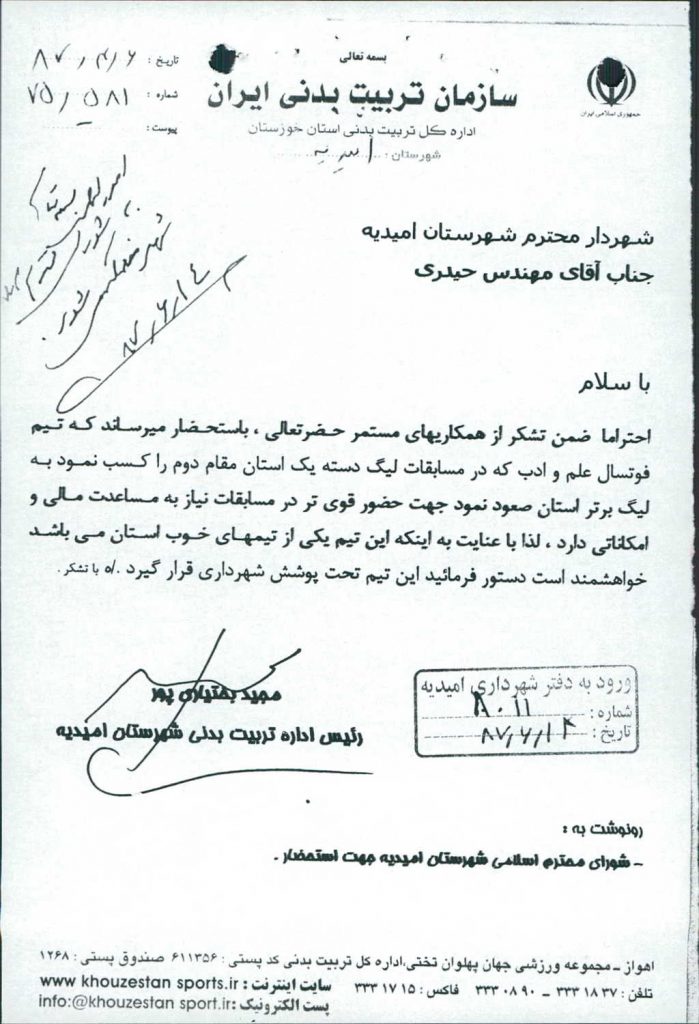 بسمه تعالی
جمهوری اسلامی ایران
سازمان تربیت بدنی ایران
اداره کل تربیت بدنی استان خوزستان
شهرستان : امیدیه
تاریخ : ۸۷/۴/۶
شماره : ۷۵/۵۸۱
پیوست :
شهردار محترم شهرستان امیدیه
جناب آقای مهندس حیدری
با سلام
احتراما ضمن تشکر از همکاریهای مستمر حضرتعالی ، باستحضار میرساند که تیم
فوتسال علم و ادب که در مسابقات لیگ دسته یک استان مقام دوم را کسب نمود به
لیگ برتر استان صعود نمود جهت حضور قوی تر در مسابقات نیاز به مساعدت مالی و
امکاناتی دارد ، لذا با عنایت به اینکه این تیم یکی از تیمهای خوب استان می باشد
خواهشمند است دستور فرمائید این تیم تحت پوشش شهرداری قرار گیرد ./ه با تشکر .
۸۷/۶/۱۴
مجید بختیاری پور
رئیس اداره تربیت بدنی شهرستان امیدیه
ورود به دفتر شهرداری امیدیه
شماره : ۸۰۱۱
تاریخ : ۸۷/۶/۱۴
رونوشت به :
- شورای محترم اسلامی شهرستان امیدیه جهت استحضار .
اهواز - مجموعه ورزشی جهان پهلوان تختی،اداره کل تربیت بدنی کد پستی : ۶۱۱۳۵۶ صندوق پستی : ۱۲۶۸
تلفن : ۳۷ ۱۸ ۳۳۳ - ۹۰ ۰۸ ۳۳۳ فاکس : ۱۵ ۱۷ ۳۳۳ سایت اینترنت : www khouzestan sports.ir
پست الکترونیک : info:@khouzestan sport.ir